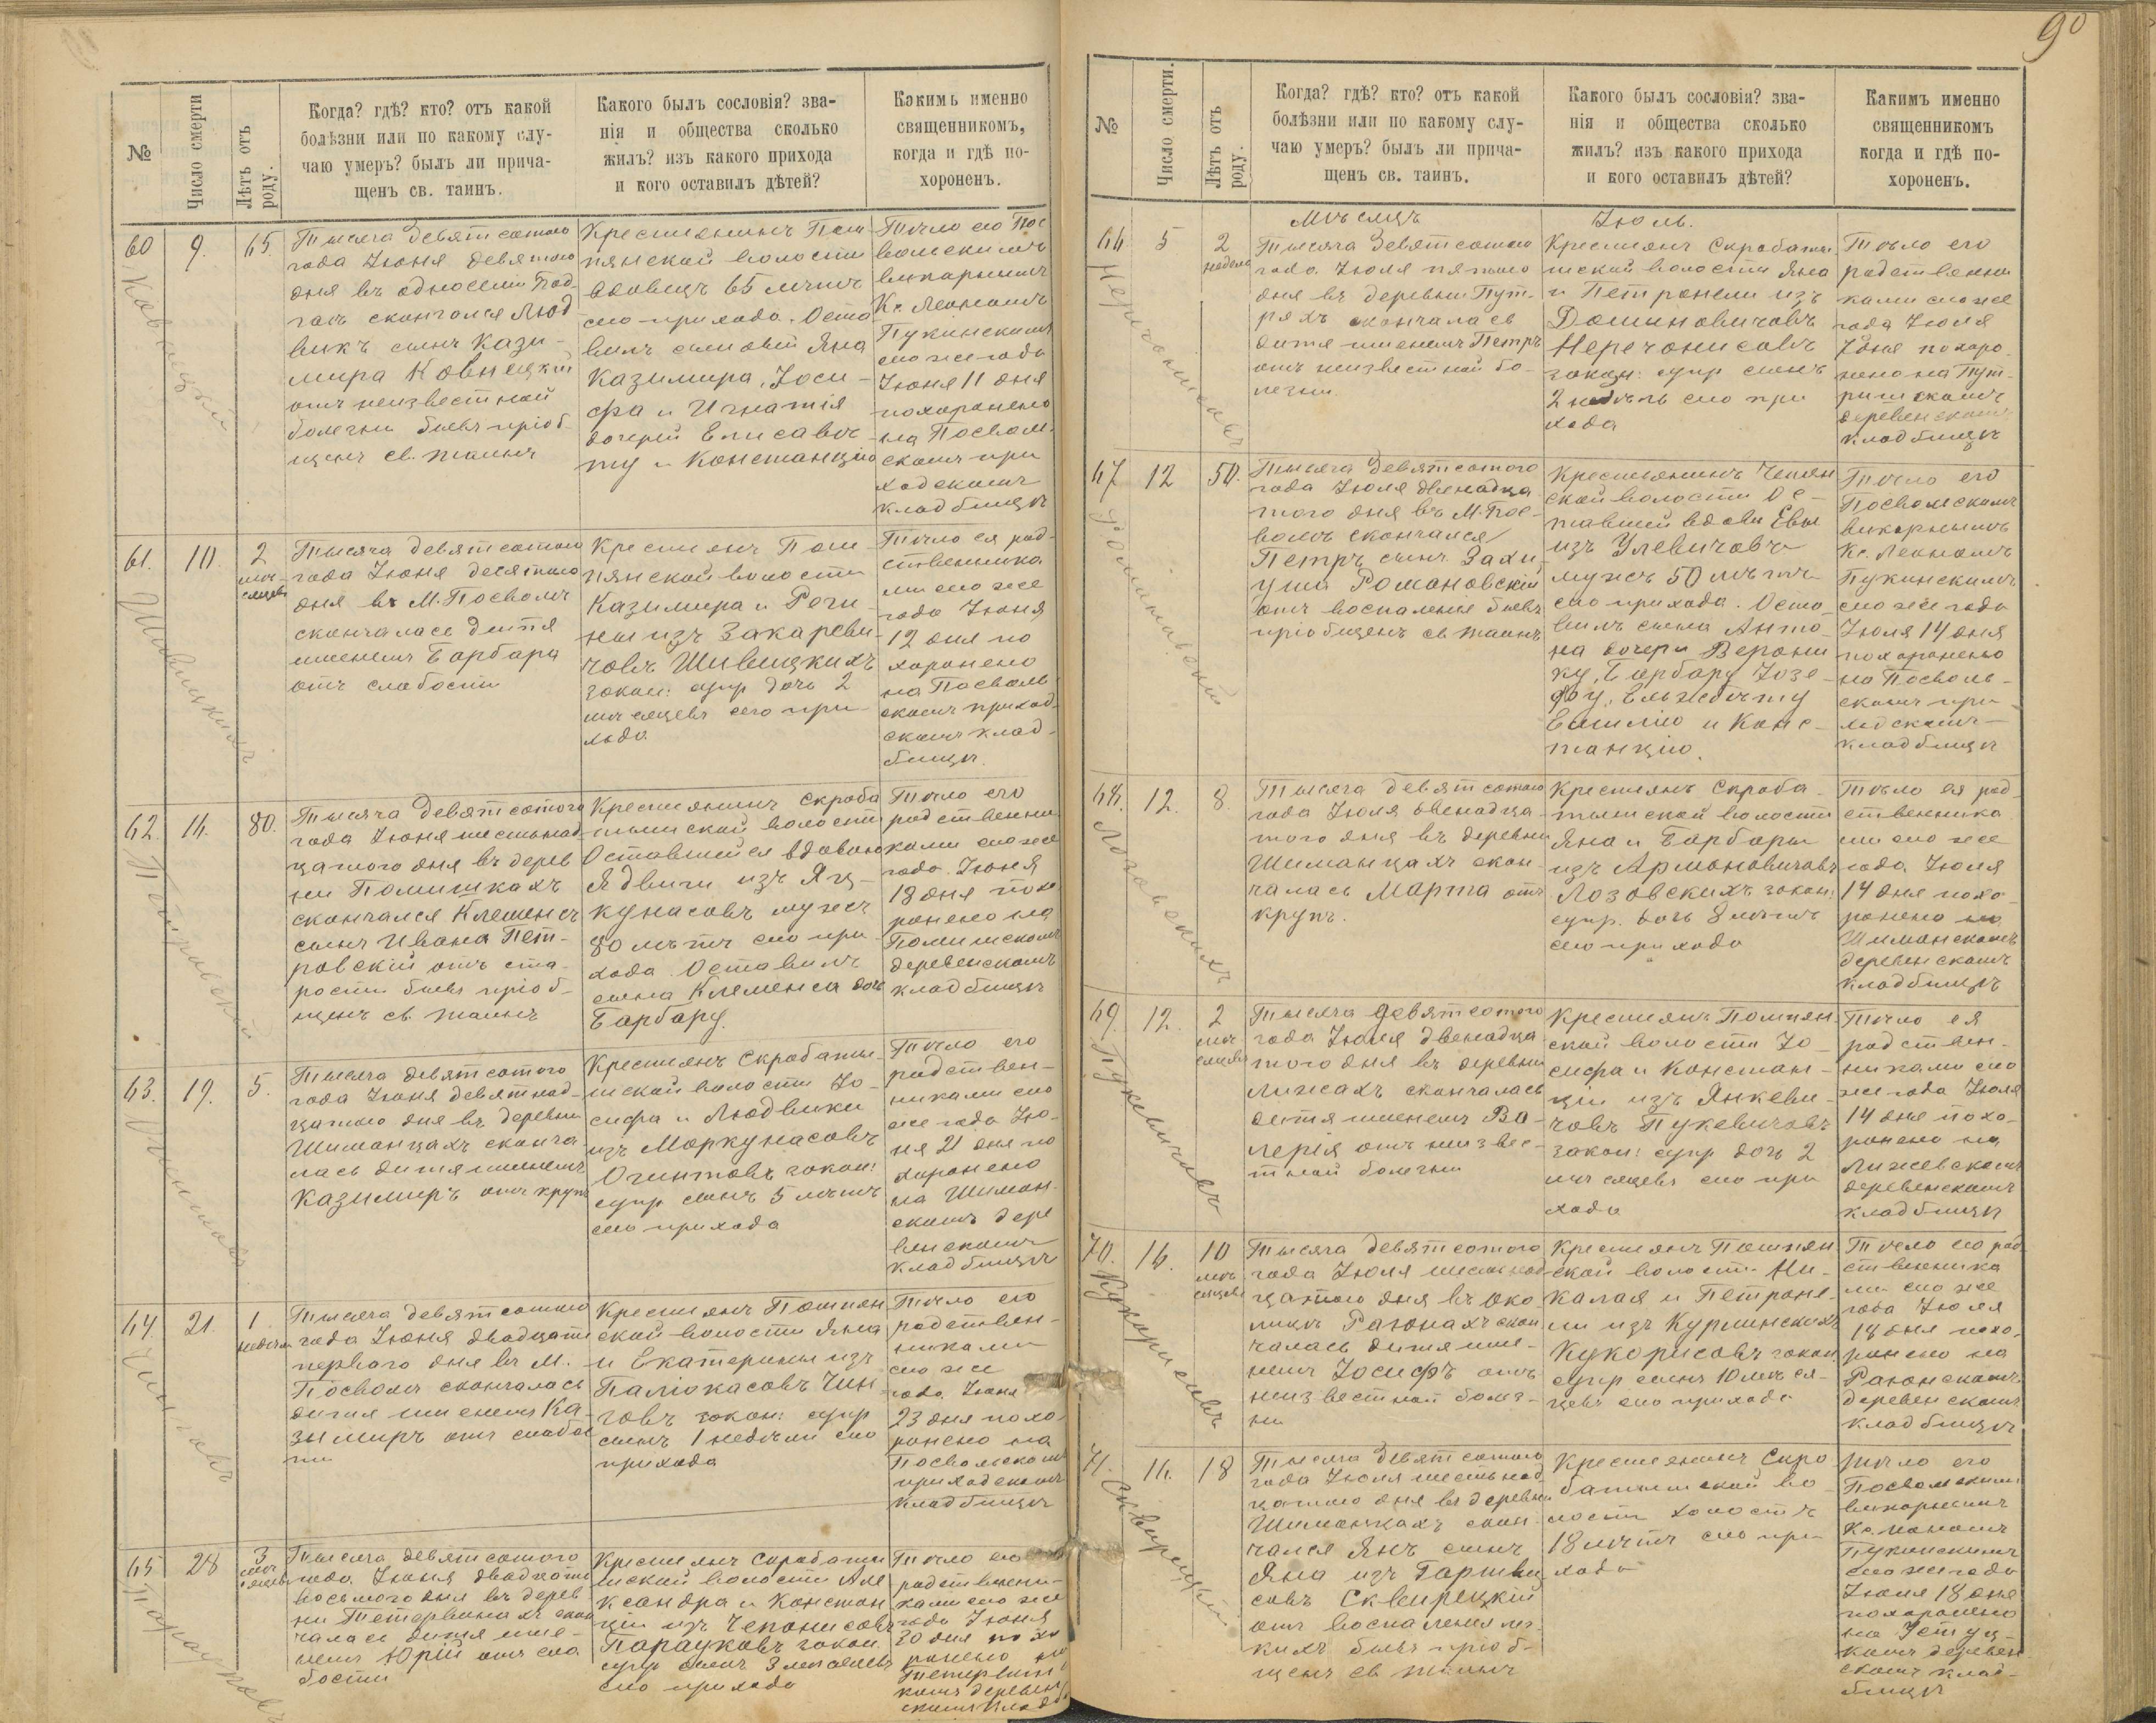 №
Число смерти
Лѣтъ отъ роду.
Когда? гдѣ? кто? отъ какой
болѣзни или по какому слу-
чаю умеръ? былъ ли прича-
щенъ св. таинъ.
Какого былъ сословія? зва-
нія и общества сколько
жилъ? изъ какого прихода
и кого оставилъ дѣтей?
Какимъ именно
священникомъ,
когда и гдѣ по-
хороненъ.
60
9.
65.
Тысяча девятсотого
года Іюня девятого
дня въ
скончался Люд
викъ сынъ Кази-
мира Ковнецкій
отъ неизвестной
болезни бывъ пріоб-
щенъ св. таинъ
Крестьянинъ Пом
пянской волости
вдовецъ 65 лѣтъ
сего прихода. Оста
вилъ сыновей Яна
Казимира, Іоси-
фа и Игнатія
дочерей Елисавѣ-
ту и Констанцію
Тѣло его Пос
вольскимъ
викарнымъ
Кс. Леономъ
Пукинскимъ
сего же года
Іюня 11 дня
похоронено
на Посволь
скомъ при
ходскомъ
кладбищѣ
61.
10.
2
мѣ-
сяцевъ
Тысяча девятсотого
года Іюня десятого
дня въ М. Посволѣ
скончалась дитя
именемъ Барбара
отъ слабости
Крестьянъ Пом
пянской волости
Казимира и Роги-
ны изъ Закареви-
човъ Шивицкихъ
закон: супр дочь 2
мѣсяцевъ сего при
хода
Тѣло ея род
ственника
ми сего же
года Іюня
12 дня по
хоронено
на Посволь
скомъ приход
скомъ клад
бищѣ.
62.
16.
80.
Тысяча девятсотого
года Іюня шестьнад
цатого дня въ дерев
ни Помишкахъ
скончался Клеменсъ
сынъ Ивана Пет-
ровскій отъ ста-
рости бывъ пріоб-
щенъ св. таинъ
Крестьянинъ Скроба
тышской волости
Оставшейся вдовою
Ядвиги изъ Яц-
кунасовъ мужъ
80 лѣтъ сего при
хода. Оставилъ
сына Клеменса дочь
Барбару.
Тѣло его
родственни
ками сего же
года Іюня
18 дня похо
ронено на
Помишскомъ
деревенскомъ
кладбищѣ
63.
19.
5.
Тысяча девятсотого
года Іюня девятнад
цатого дня въ деревни
Шиманцахъ сконча
лась дитя именемъ
Казимиръ отъ крупъ
Крестьянъ Скробаты-
шской волости Іо-
сифа и Людвики
изъ Моркунасовъ
Огинтовъ закон:
супр сынъ 5 лѣтъ
сего прихода
Тѣло его
родствен-
никами сего
же года Ію-
ня 21 дня по
хоронено
на Шиман-
скомъ дере
венскомъ
кладбищѣ
64.
21.
1
недѣли
Тысяча девятсотого
года Іюня двадцати
первого дня въ М.
Посволѣ скончалась
дитя именемъ Ка-
зимиръ отъ слабос
ти
Крестьянъ Помпян
ской волости Яна
и Екатерины изъ
Паліокасовъ Чин-
говъ закон: супр
сынъ 1 недѣли сего
прихода
Тѣло его
родствен-
никами
сего же
года Іюня
23 дня похо-
ронено на
Посвольскомъ
приходскомъ
кладбищѣ
65
28
3
мѣ-
сяцевъ
Тысяча девятсотого
года Іюня двадцать
восьмого дня въ дерев
ни Тетервинахъ скон
чалась дитя име-
немъ Юрій отъ сла
бости
Крестьянъ Скробаты
шской волости Але
ксандра и Констан
ціи изъ Чепонисовъ
Парауковъ закон.
супр сынъ 3 мѣсяцевъ
сего прихода
Тѣло его
родственни-
ками сего же
года Іюня
30 дня похо
ронено на
деревен
скомъ кладб
90
№
Число смерти.
Лѣтъ отъ роду.
Когда? гдѣ? кто? отъ какой
болѣзни или по какому слу-
чаю умеръ? былъ ли прича-
щенъ св. таинъ.
Какого былъ сословія? зва-
нія и общества сколько
жилъ? изъ какого прихода
и кого оставилъ дѣтей?
Какимъ именно
священникомъ
когда и гдѣ по-
хороненъ.
Мѣсяцъ
Іюль.
66
5
2
недель
Тысяча девятсотого
года Іюля пятого
дня въ деревни Пут-
ряхъ скончалась
дитя именемъ Петръ
отъ неизвестной бо-
лезни
Крестьянъ Скробаты
шской волости Яна
и Петронели изъ
Доминовичовъ
Неречонисовъ
закон: супр сынъ
2 недѣль сего при
хода
Тѣло его
родственни
ками сего же
года Іюля
7 дня похоро-
нено на Пут-
ришскомъ
деревенскомъ
кладбищѣ
67
12
50.
Тысяча девятсотого
года Іюля двенадца
того дня въ М. Пос-
волѣ скончался
Петръ сынъ
Романовскій
отъ воспаленія бывъ
пріобщенъ св таинъ
Крестьянинъ Чепян
ской волости Ос-
тавшей вдовы Евы
изъ Улевичовъ
мужъ 50 лѣтъ
сего прихода. Оста-
вилъ сына Анто-
на дочери Верони
ку, Барбару Іозе-
фу, Ельжбѣту
Емилію и Конс-
танцію.
Тѣло его
Посвольскимъ
викарнымъ
Кс. Леономъ
Пукинскимъ
сего же года
Іюля 14 дня
похоронено
на Посволь-
скомъ при
ходскомъ
кладбищѣ
68.
12.
8.
Тысяча девятсотого
года Іюля двенадца-
того дня въ деревни
Шиманцахъ скон-
чалась Марта отъ
крупъ.
Крестьянъ Скроба-
тышской волости
Яна и Барбары
изъ Армоновичовъ
Лозовскихъ закон:
супр. дочь 8 лѣтъ
сего прихода
Тѣло ея род
ственника
ми сего же
года Іюля
14 дня похо-
ронено на
Шиманскомъ
деревенскомъ
кладбищѣ
69.
12.
2
мѣ-
сяцевъ
Тысяча девятсотого
года Іюля двенадца
того дня въ деревни
Лижахъ скончалась
дитя именемъ Ва-
лерія отъ неизвес-
тной болезни
Крестьянъ Помпян
ской волости Іо-
сифа и Констан-
ціи изъ Янкеви-
човъ Пукевичовъ
закон: супр дочь 2
мѣсяцевъ сего при
хода
Тѣло ея
родствен-
никами сего
же года Іюля
14 дня похо-
ронено на
Лижевскомъ
деревенскомъ
кладбищѣ
70.
16.
10
мѣ-
сяцевъ
Тысяча девятсотого
года Іюля шестьнад
цатого дня въ око
лицѣ Раюнахъ скон
чалась дитя име-
немъ Іосифъ отъ
неизвестной болез-
ни
Крестьянъ Помпян
ской волости Ни-
калая и Петроне-
ли изъ Курминскихъ
Кукорисовъ закон.
супр сынъ 10 мѣся-
цевъ сего прихода
Тѣло его род
ственника
ми сего же
года Іюля
18 дня похо-
ронено на
Раюнскомъ
деревенскомъ
кладбищѣ
71.
16.
18
Тысяча девятсотого
года Іюля шестьнад
цатого дня въ деревни
Шиманцахъ скон-
чался Янъ сынъ
Яна изъ Гаршви
совъ Сквирецкій
отъ воспаленія лег-
кихъ бывъ пріоб-
щенъ св таинъ
Крестьянинъ Скро
батышской во-
лости холостъ
18 лѣтъ сего при
хода
Тѣло его
Посвольскимъ
викарнымъ
Кс. Леономъ
Пукинскимъ
сего же года
Іюля 18 дня
похоронено
на
деревен
скомъ клад-
бищѣ